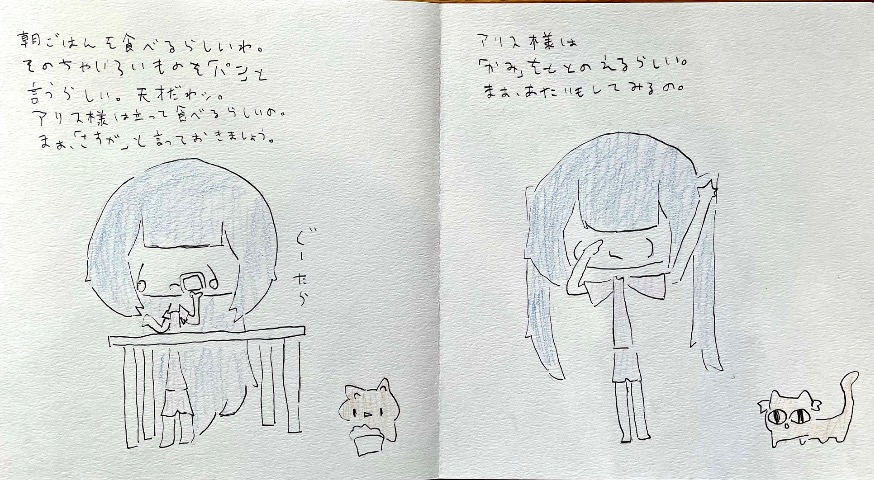 朝ごはんを食べるらしいわ。
そのちゃいろいものを「パン」と
言うらしい。天才だわッ。
アリス様は立って食べるらしいの。
まぁ、「さすが」と言っておきましょう。
ぐーたら
アリス様は
「かみ」をととのえるらしい。
まぁ、あたいもしてみるの。